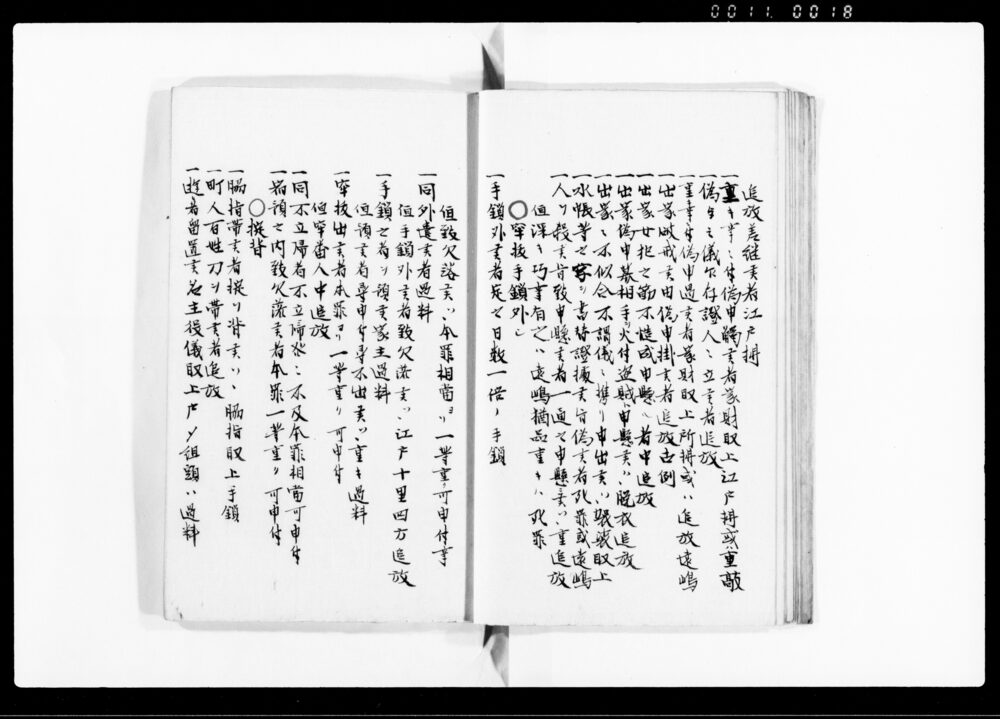 0011 0018
追放差縫者江戸拂
一重キ事ニ付偽申觸者家財取上江戸拂或重敲
一偽ケ之儀乍存證人ニ立者追放
一重キ事ニ付偽申過者家財取上所拂或ハ追放遠嶋
一出家破戒之由偽申掛者追放古例
一出家女犯之節不慥成申懸ル者中追放
一出家偽申慕相手ヲ火付盗賊申懸ハ脱衣追放
一出家ニ不似合不謂儀ニ携リ申出ハ袈裟取上
一水帳等之家ヲ書替證據者死罪或遠嶋
一人ヲ殺旨致申懸者一通之申懸ハ重追放
但深キ巧事有之ハ遠嶋猶品重キハ死罪
○牢抜手鎖外シ
一手鎖外者定之日数一倍ノ手鎖
但致欠落ハ本罪相當ヨリ一等重ク可申付事
一同外遣者過料
但手鎖外者致欠落ハ江戸十里四方追放
一手鎖之者ヲ預家主過料
但預者尋申付尋不出ハ重キ過料
一牢抜出者本罪ヨリ一等重ク可申付
但牢番人中追放
一同不立帰者不立帰ニ不及本罪相當可申付
一宿預之内致欠落者本罪一等重ク可申付
○掟背
一脇指帯者掟ヲ背ハ脇指取上手鎖
一町人百姓刀ヲ帯者追放
一遊者留置名主役儀取上戸〆組頭ハ過料